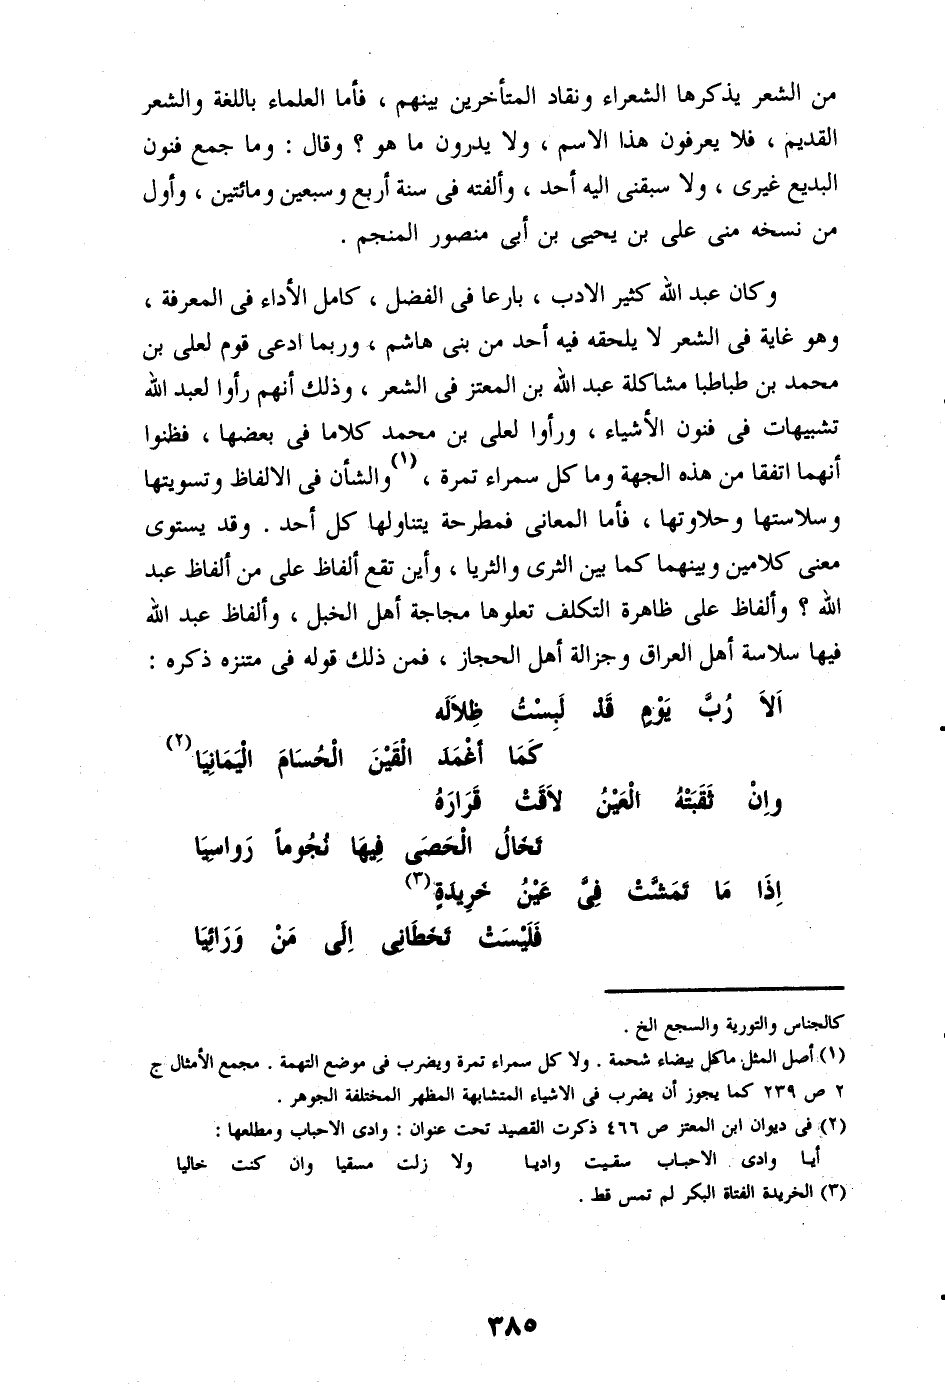 من الشعر يذكرها الشعراء ونقاد المتأخرين بينهم ، فأما العلماء باللغة والشعر
القديم ، فلا يعرفون هذا الاسم ، ولا يدرون ما هو ؟ وقال : وما جمع فنون
البديع غيرى ، ولا سبقنى اليه أحد ، وألفته فى سنة أربع وسبعين ومائتين ، وأول
من نسخه منى على بن يحيى بن أبى منصور المنجم .
وكان عبد الله كثير الادب ، بارعا فى الفضل ، كامل الأداء فى المعرفة ،
وهو غاية فى الشعر لا يلحقه فيه أحد من بنى هاشم ، وربما ادعى قوم لعلى بن
محمد بن طباطبا مشاكلة عبد الله بن المعتز فى الشعر ، وذلك أنهم رأوا لعبد الله
تشبيهات فى فنون الأشياء ، ورأوا لعلى بن محمد كلاما فى بعضها ، فظنوا
أنهما اتفقا من هذه الجهة وما كل سمراء تمرة ، (١) والشأن فى الالفاظ وتسويتها
وسلاستها وحلاوتها ، فأما المعانى فمطرحة يتناولها كل أحد . وقد يستوى
معنى كلامين وبينهما كما بين الثرى والثريا ، وأين تقع ألفاظ على من ألفاظ عبد
الله ؟ وألفاظ على ظاهرة التكلف تعلوها مجاجة أهل الخبل ، وألفاظ عبد الله
فيها سلاسة أهل العراق وجزالة أهل الحجاز ، فمن ذلك قوله فى متنزه ذكره :
اَلاَ رُبَّ يَوْمٍ قَدْ لَبِسْتُ ظِلاَلَه
كَمَا أغْمَدَ الْقَيْنَ الْحُسَامَ الْيَمَانِيَا (٢)
وإنْ ثَقَبَتْهُ الْعَيْنُ لاَقَتْ قَرَارَهُ
تَخَالُ الْحَصَى فِيهَا نُجُوماً رَواسِيَا
إذَا مَا تَمَشَّتْ فِىَّ عَيْنُ خَرِيدَةٍ (٣)
فَلَيْسَتْ تَخَطَانِى اِلَى مَنْ وَرَائِيَا
كالجناس والتورية والسجع الخ .
(١) أصل المثل ماكل بيضاء شحمة . ولا كل سمراء تمرة ويضرب فى موضع التهمة . مجمع الأمثال ج
٢ ص ٢٣٩ كما يجوز أن يضرب فى الاشياء المتشابهة المظهر المختلفة الجوهر .
(٢) فى ديوان ابن المعتز ص ٤٦٦ ذكرت القصيد تحت عنوان : وادى الاحباب ومطلعها :
أيا وادى الاحباب سقيت واديا ولا زلت مسقيا وان كنت خاليا
(٣) الخريدة الفتاة البكر لم تمس قط .
٣٨٥